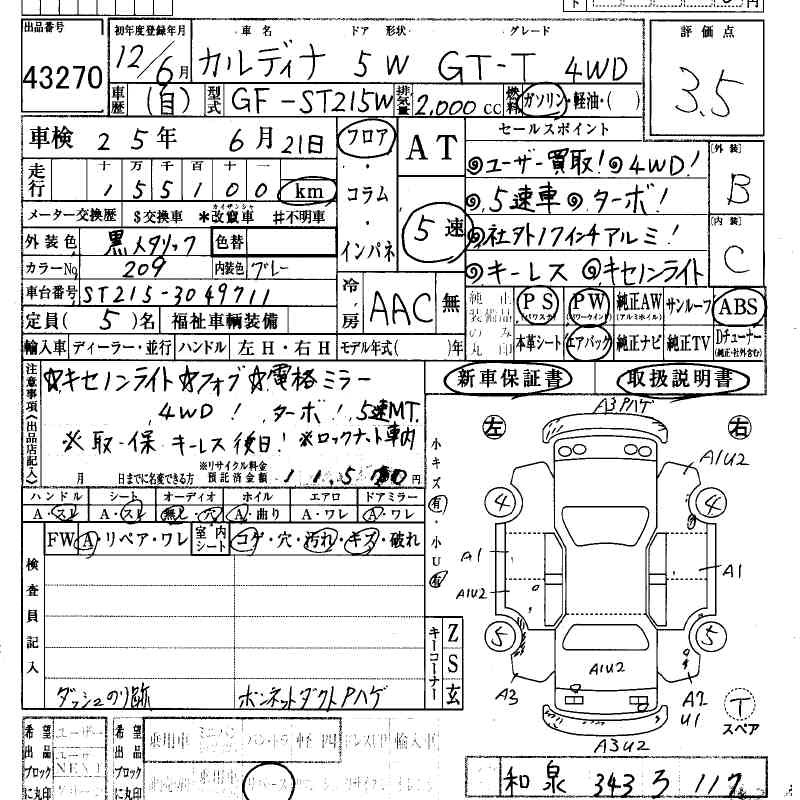 出品番号
43270
初年度登録年月 車名 ドア 形状 グレード
12/6月 カルディナ 5W GT-T 4WD
車歴 (自) 型式 GF-ST215W 排気量 2,000cc 燃料 ガソリン・軽油・( )
評価点
3.5
車検 25年 6月21日
走行 十 万 千 百 十 一
1 5 5 1 0 0 km
メーター交換歴 $交換車 *改竄車 #不明車
フロア・コラム・インパネ
AT
5速
セールスポイント
◎ユーザー買取!◎4WD!
◎5速車◎ターボ!
◎社外17インチアルミ!
◎キーレス ◎キセノンライト
外装
B
内装
C
外装色 黒メタリック 色替
カラーNo. 209 内装色 グレー
車台番号 ST215-3049711
定員( 5 )名 福祉車輌装備
冷房 AAC 無
輸入車 ディーラー・並行 ハンドル 左H・右H モデル年式( )年
純正装備品のみ丸印
PS(パワステ) PW(パワーウインド) 純正AW(アルミホイル) サンルーフ ABS
本革シート エアバック 純正ナビ 純正TV Dチューナー(純正・社外含む)
新車保証書 取扱説明書
注意事項(出品店記入)
☆キセノンライト☆フォグ☆電格ミラー
4WD! ターボ! 5速MT.
※取・保 キーレス後日! ※ロックナット車内
月 日までに名変できる方 ※リサイクル料金預託済金額 円
ハンドル シート オーディオ ホイル エアロ ドアミラー
A・スレ A・スレ 無し・穴 A・曲り A・ワレ A・ワレ
FW A・リペア・ワレ 室内シート コゲ・穴・汚れ・キズ・破れ
検査員記入
ダッシュのり跡
ボンネットダクトPハゲ
小キズ有・小U有
キーコーナー
Z
S
玄
左
右
A3 Pハゲ
A1U2
4
4
A1
A1
A1U2
5
5
A1U2
A3
A2
U1
A3U2
T
スペア
希望出品ブロックに丸印
ユーザー
希望出品ブロックに丸印
乗用車 軽四 輸入車
和泉 343